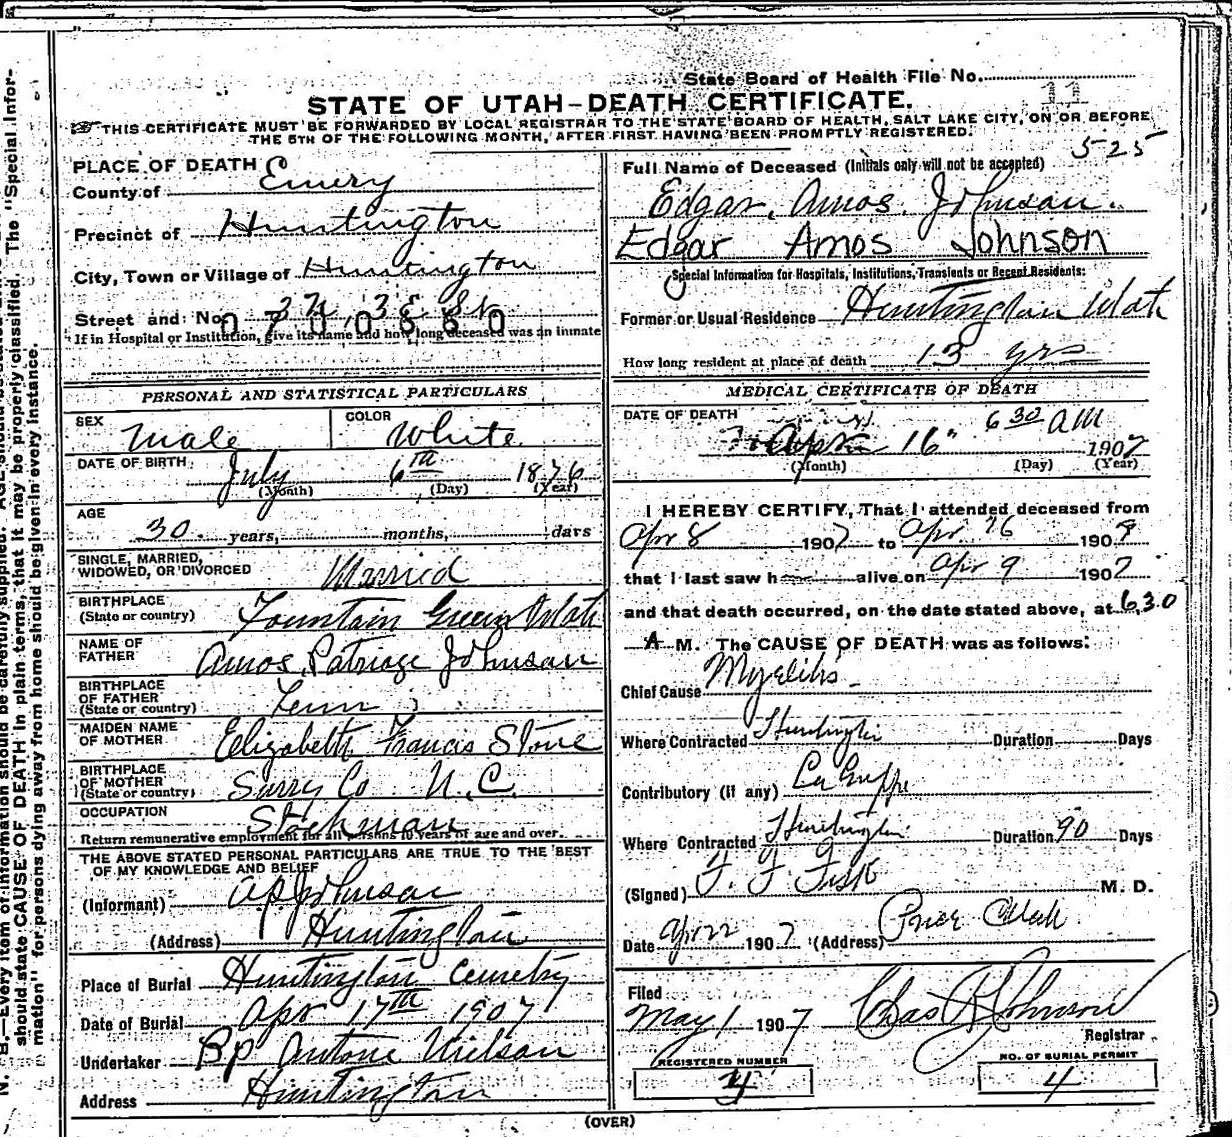 State Board of Health File No.
11
STATE OF UTAH-DEATH CERTIFICATE.
THIS CERTIFICATE MUST BE FORWARDED BY LOCAL REGISTRAR TO THE STATE BOARD OF HEALTH, SALT LAKE CITY, ON OR BEFORE
THE 5TH OF THE FOLLOWING MONTH, AFTER FIRST HAVING BEEN PROMPTLY REGISTERED.
525
PLACE OF DEATH
County of Emery
Precinct of Huntington
City, Town or Village of Huntington
Street and No.
If in Hospital or Institution, give its name and how long deceased was an inmate
PERSONAL AND STATISTICAL PARTICULARS
SEX Male COLOR White
DATE OF BIRTH July 6th 1876
(Month) (Day) (Year)
AGE
30 years, months, days
SINGLE, MARRIED,
WIDOWED, OR DIVORCED Married
BIRTHPLACE
(State or country) Fountain Green Utah
NAME OF
FATHER Amos Patriage Johnson
BIRTHPLACE
OF FATHER
(State or country) Tenn
MAIDEN NAME
OF MOTHER Elizabeth Francis Stone
BIRTHPLACE
OF MOTHER
(State or country) Surry Co N.C.
OCCUPATION Stockman
Return remunerative employment for all persons 10 years of age and over.
THE ABOVE STATED PERSONAL PARTICULARS ARE TRUE TO THE BEST
OF MY KNOWLEDGE AND BELIEF
(Informant) A P Johnson
(Address) Huntington
Place of Burial Huntington Cemetry
Date of Burial Apr 17th 1907
Undertaker Bp Antone Nielson
Address Huntington
Full Name of Deceased (Initials only will not be accepted)
Edgar Amos Johnson.
Edgar Amos Johnson
Special Information for Hospitals, Institutions, Transients or Recent Residents:
Former or Usual Residence Huntington Utah
How long resident at place of death 13 yrs
MEDICAL CERTIFICATE OF DEATH
DATE OF DEATH 6 30 AM
Apr 16" 1907
(Month) (Day) (Year)
I HEREBY CERTIFY, That I attended deceased from
Apr 8 1907 to Apr 16 1907
that I last saw h alive on Apr 9 1907
and that death occurred, on the date stated above, at 6,30
A M. The CAUSE OF DEATH was as follows:
Chief Cause Myelitis
Where Contracted Huntington Duration Days
Contributory (if any) La Grippe
Where Contracted Huntington Duration 90 Days
(Signed) F. F. Fisk M. D.
Date Apr 22 1907 (Address) Price Utah
Filed
May 1 1907 Chas H Johnson
Registrar
REGISTERED NUMBER
4
NO. OF BURIAL PERMIT
4
(OVER)
N. B.—Every item of information should be carefully supplied. AGE should be stated
should state CAUSE OF DEATH in plain terms, that it may be properly classified. The "Special Infor-
mation" for persons dying away from home should be given in every instance.